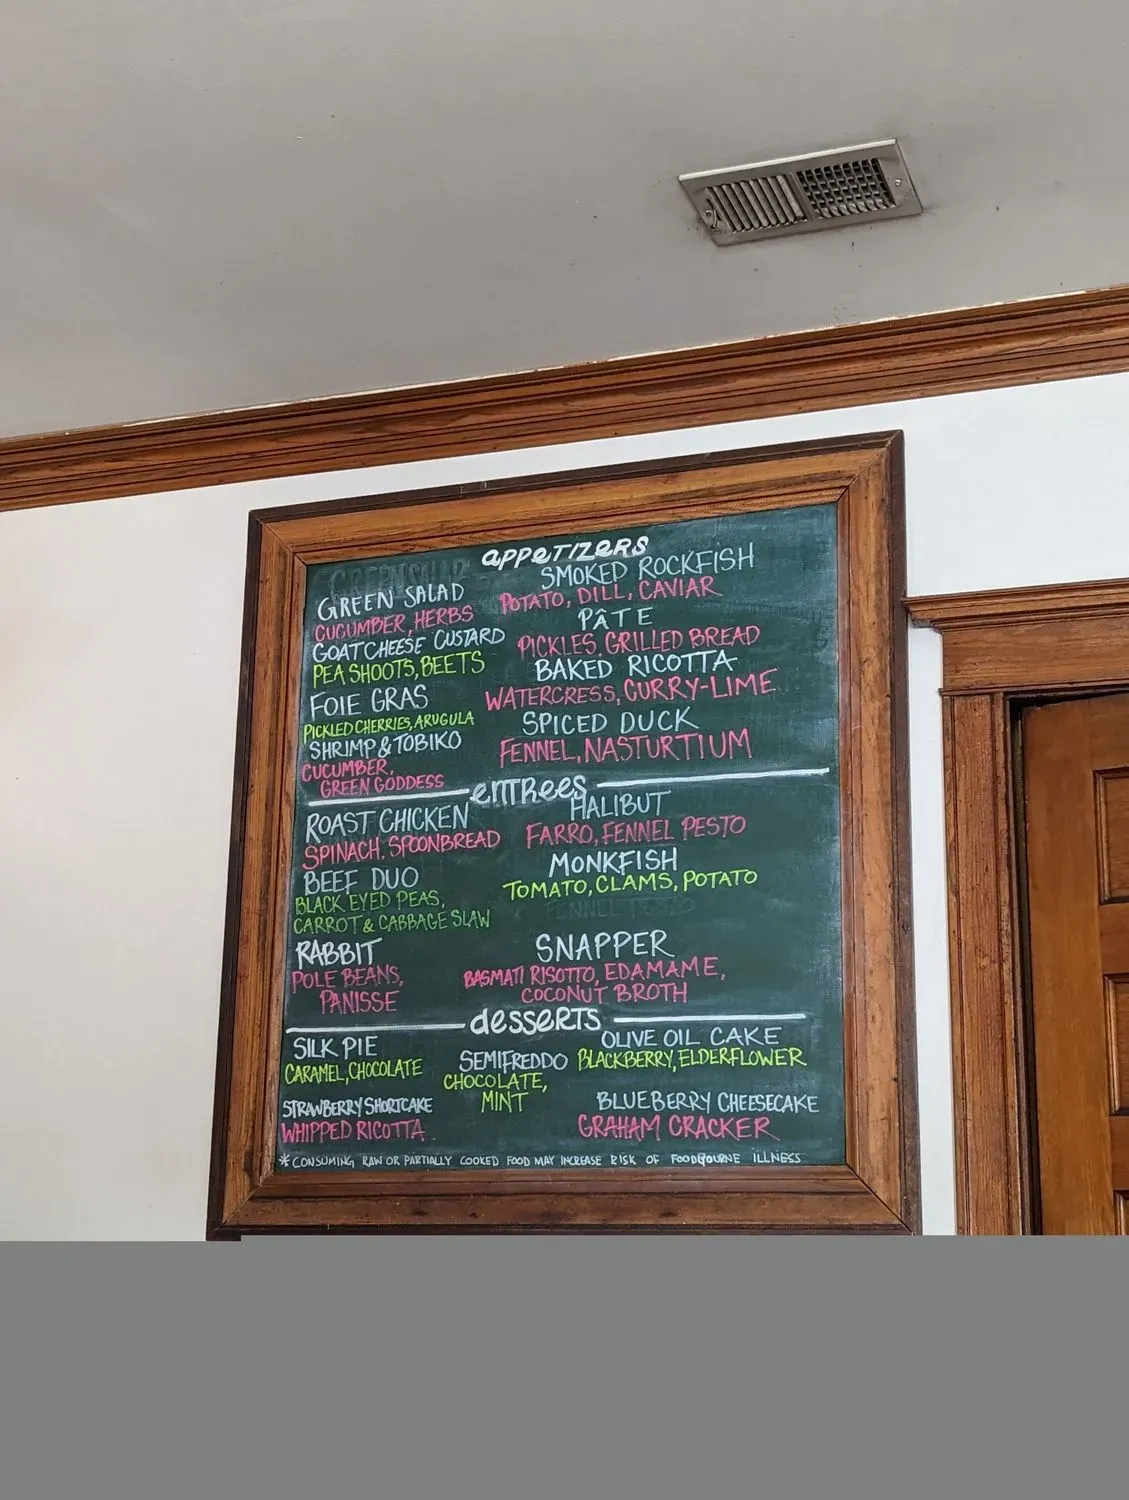 appetizers
GREEN SALAD
CUCUMBER, HERBS
GOAT CHEESE CUSTARD
PEA SHOOTS, BEETS
FOIE GRAS
PICKLED CHERRIES, ARUGULA
SHRIMP & TOBIKO
CUCUMBER,
GREEN GODDESS
SMOKED ROCKFISH
POTATO, DILL, CAVIAR
PÂTE
PICKLES, GRILLED BREAD
BAKED RICOTTA
WATERCRESS, CURRY-LIME
SPICED DUCK
FENNEL, NASTURTIUM
entrees
ROAST CHICKEN
SPINACH, SPOONBREAD
BEEF DUO
BLACK EYED PEAS,
CARROT & CABBAGE SLAW
RABBIT
POLE BEANS,
PANISSE
HALIBUT
FARRO, FENNEL PESTO
MONKFISH
TOMATO, CLAMS, POTATO
FENNEL PESTO
SNAPPER
BASMATI RISOTTO, EDAMAME,
COCONUT BROTH
desserts
SILK PIE
CARAMEL, CHOCOLATE
STRAWBERRY SHORTCAKE
WHIPPED RICOTTA
SEMIFREDDO
CHOCOLATE,
MINT
OLIVE OIL CAKE
BLACKBERRY, ELDERFLOWER
BLUEBERRY CHEESECAKE
GRAHAM CRACKER
*CONSUMING RAW OR PARTIALLY COOKED FOOD MAY INCREASE RISK OF FOODBOURNE ILLNESS